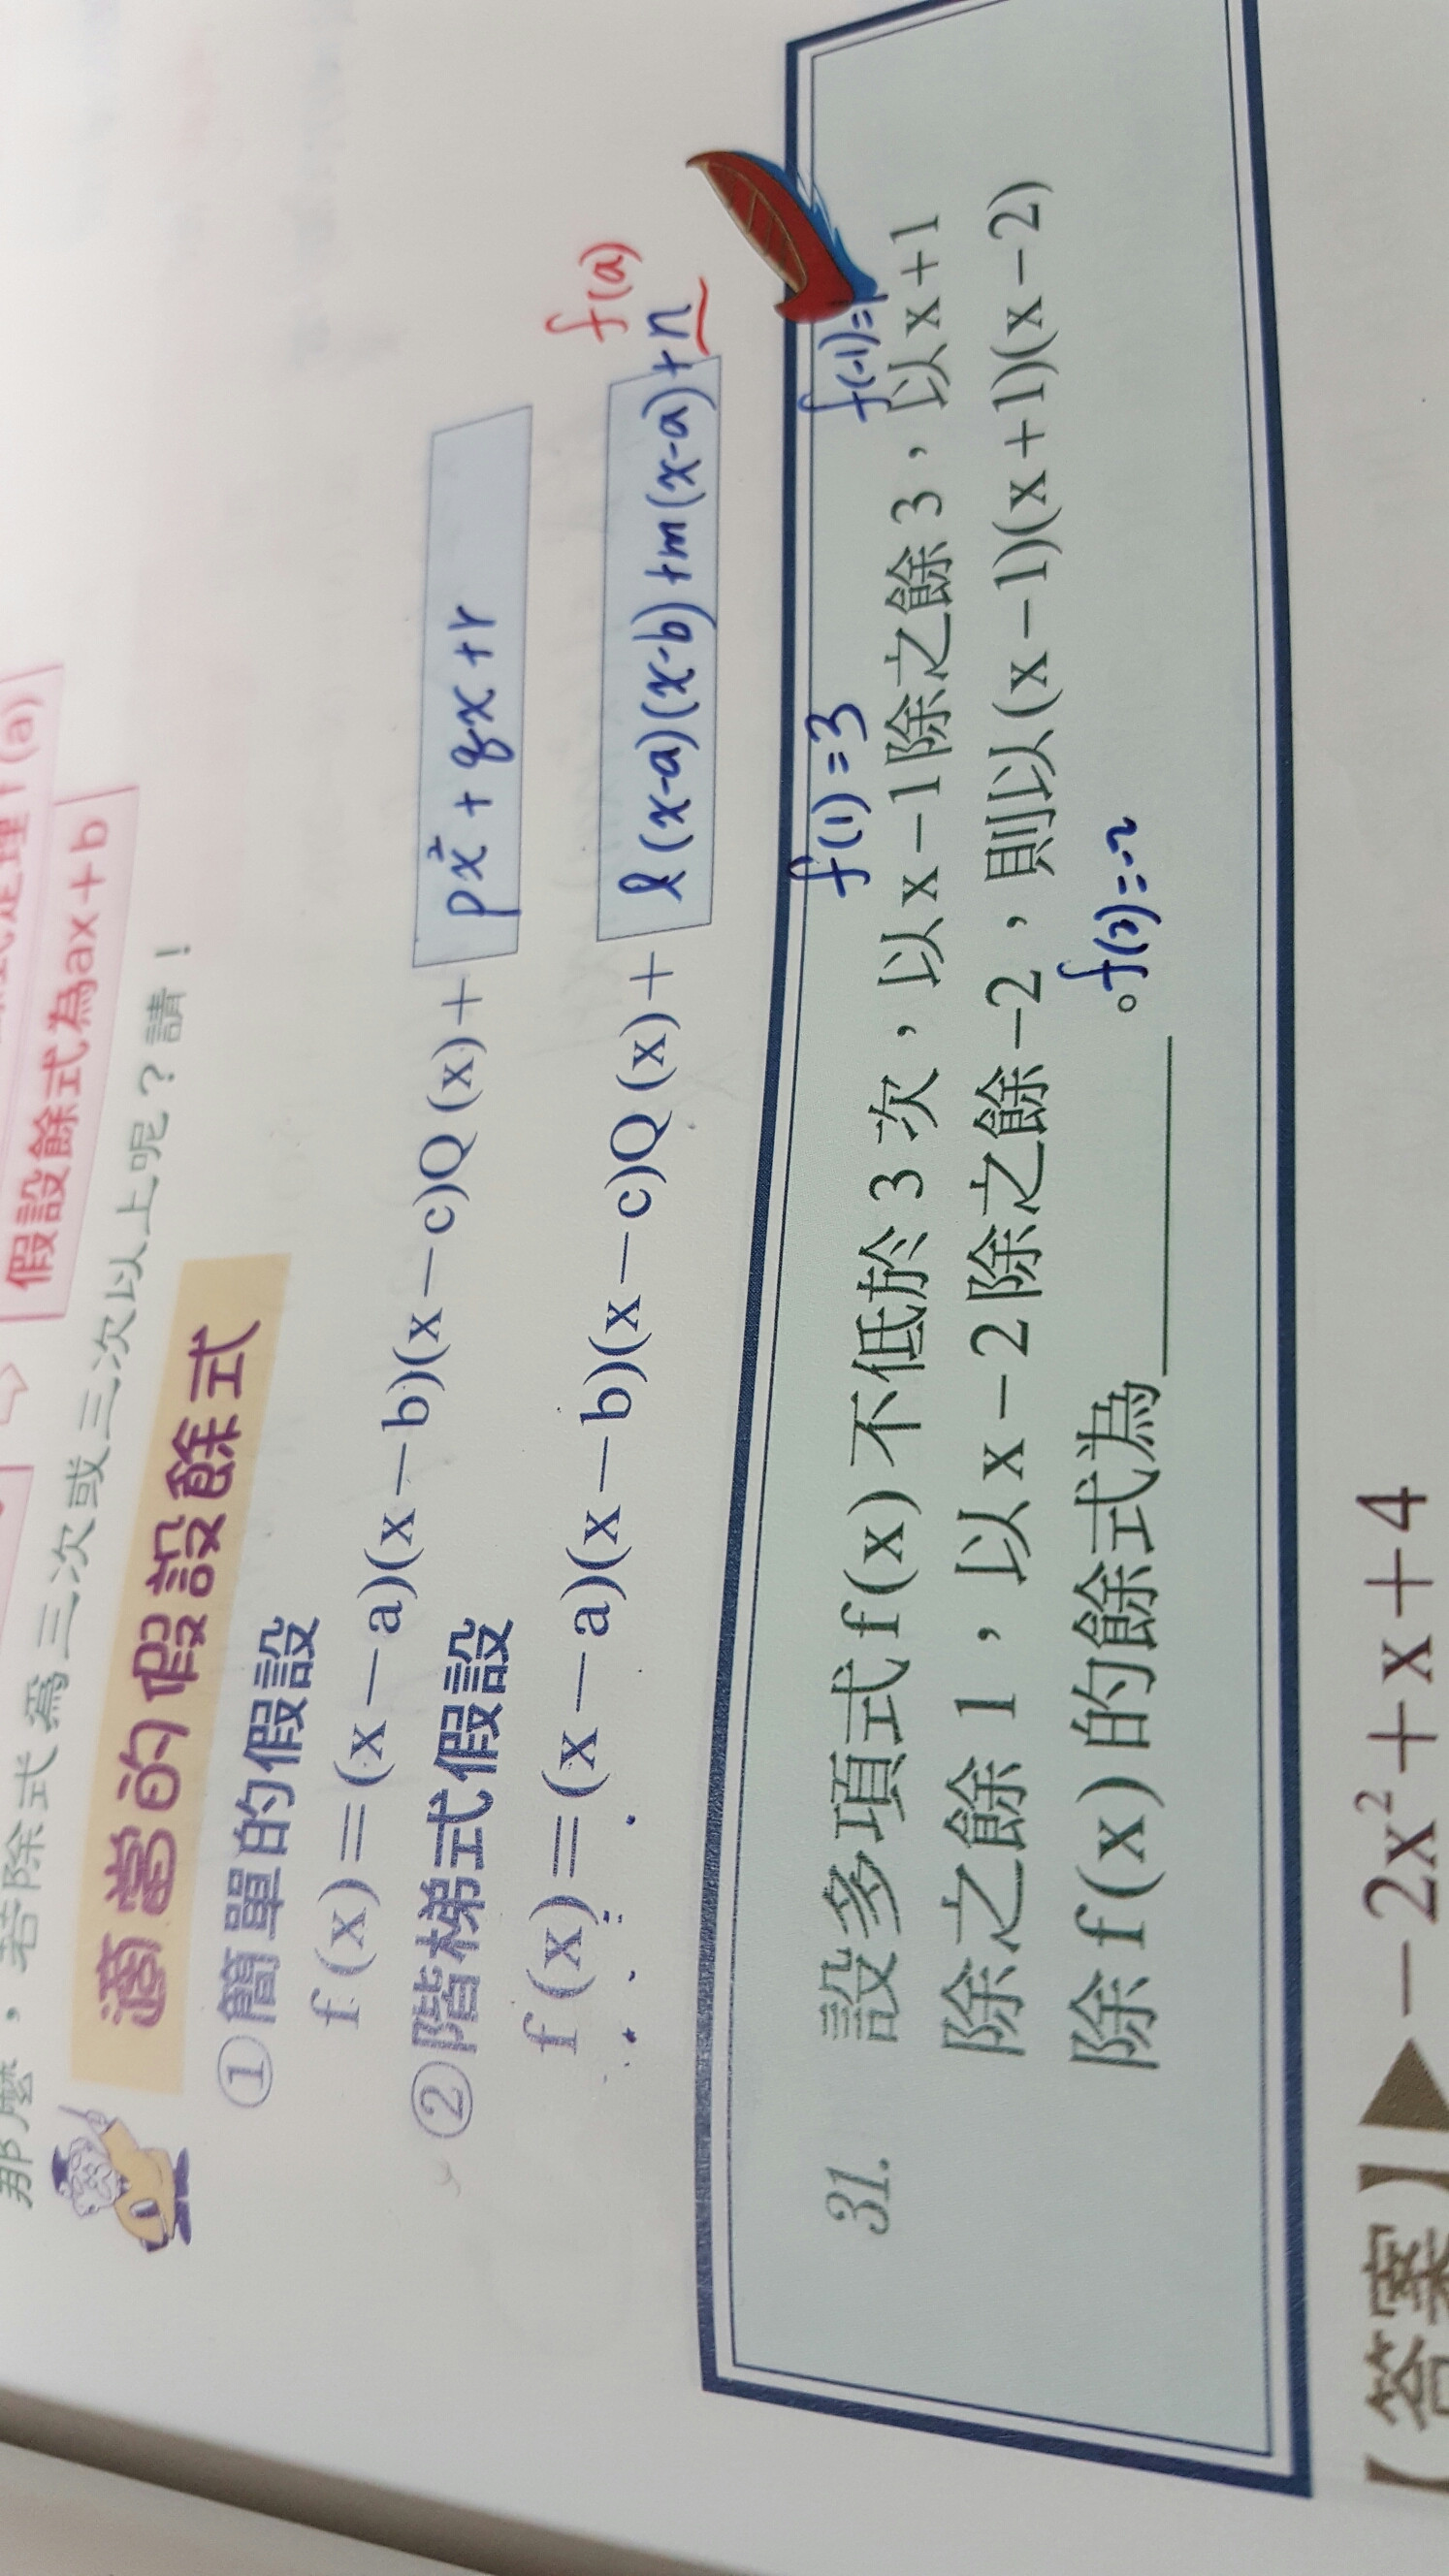 (a)
假設餘式為ax+b
那麼，若除式為三次或三次以上呢？請！
適當的假設餘式
①簡單的假設
f(x)=(x－a)(x－b)(x－c)Q(x)+ px²+qx+r
②階梯式假設
f(a)
f(x)=(x－a)(x－b)(x－c)Q(x)+ l(x-a)(x-b)+m(x-a)+n
f(1)=3 f(-1)=1
31. 設多項式f(x)不低於3次，以x－1除之餘3，以x+1
除之餘1，以x－2除之餘－2，則以(x－1)(x+1)(x－2)
除f(x)的餘式為＿＿＿＿。f(2)=-2
【答案】▶－2x²+x+4